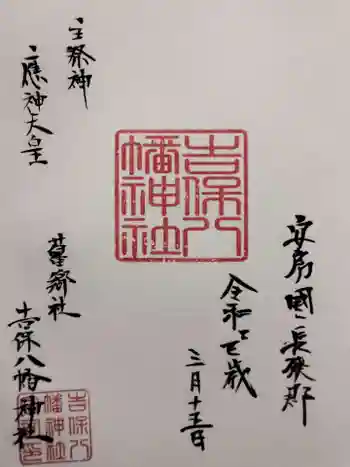 安房國長狹郡
令和歳
三月十五日
吉保八
幡神社
主祭神
應神天皇
舊郷社
吉保八幡神社
吉保八
幡神社